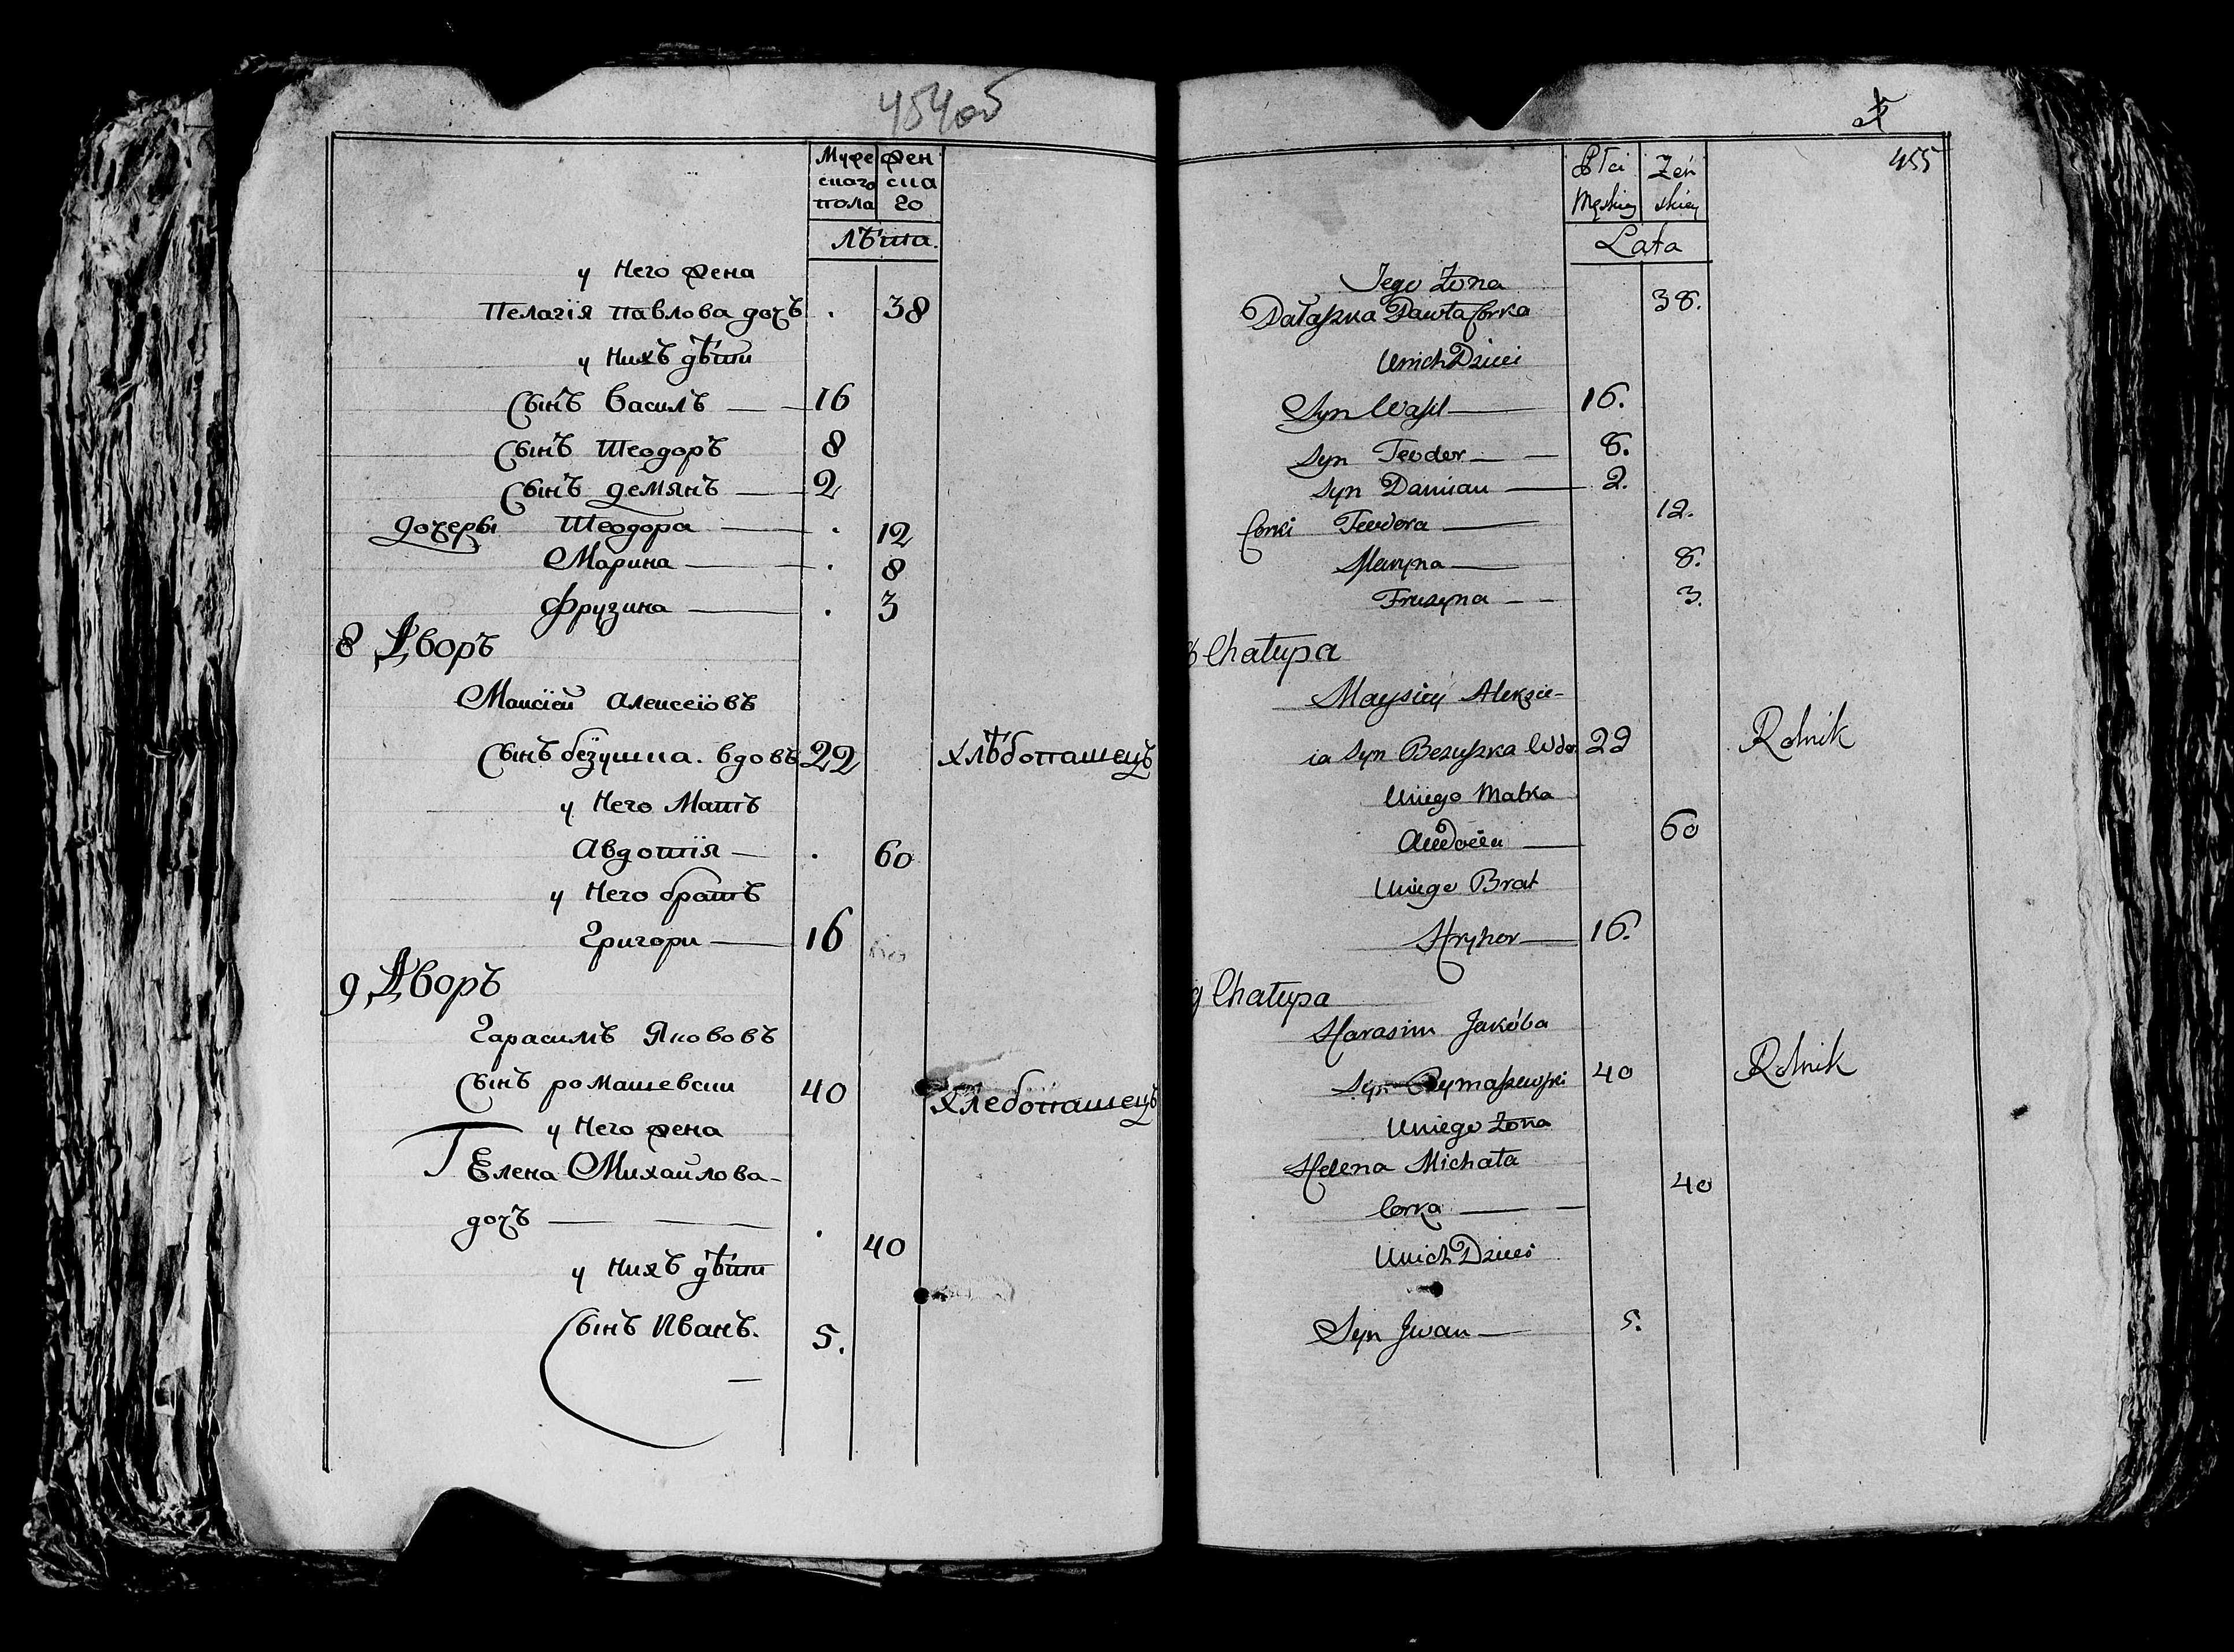 454об
Муже жен
скаго ска
пола го
лѣта.
у него жена
Пелагія павлова дочъ . 38
у нихъ дѣти
Сынъ василъ 16
Сынъ Теодоръ 8
Сынъ демянъ 2
дочеры Теодора . 12
Марина . 8
Фрузина . 3
8 Дворъ
Моисіей алексеіовъ
Сынъ безушка. вдовъ 22 хлѣбопашецъ
у него Матъ
Авдотія . 60
у него братъ
Григори 16
9 Дворъ
Гарасимъ Якововъ
Сынъ ромашевски 40 хлебопашецъ
у него жена
Елена Михаилова
дочъ . 40
у нихъ дѣти
Сынъ Иванъ. 5.
455
Płci Żeń
Męskiey skiey
Lata
Jego Żona
Pałaszka Pawła Corka 38.
Unich Dzieci
Syn Wasyl 16.
Syn Teodor 8.
Syn Damian 2.
Corki Teodora 12.
Maryna 8.
Fruzyna 3.
8 Chałupa
Moysiey Alexie-
ia Syn Bezuszka Wdo. 22 Rolnik
Uniego Matka
Awdocia 60
Uniego Brat
Hryhor 16.
9 Chałupa
Harasim Jakóba
Syn Rymaszewski 40 Rolnik
Uniego Żona
Helena Michała
Corka 40
Unich Dzieci
Syn Jwan 5.